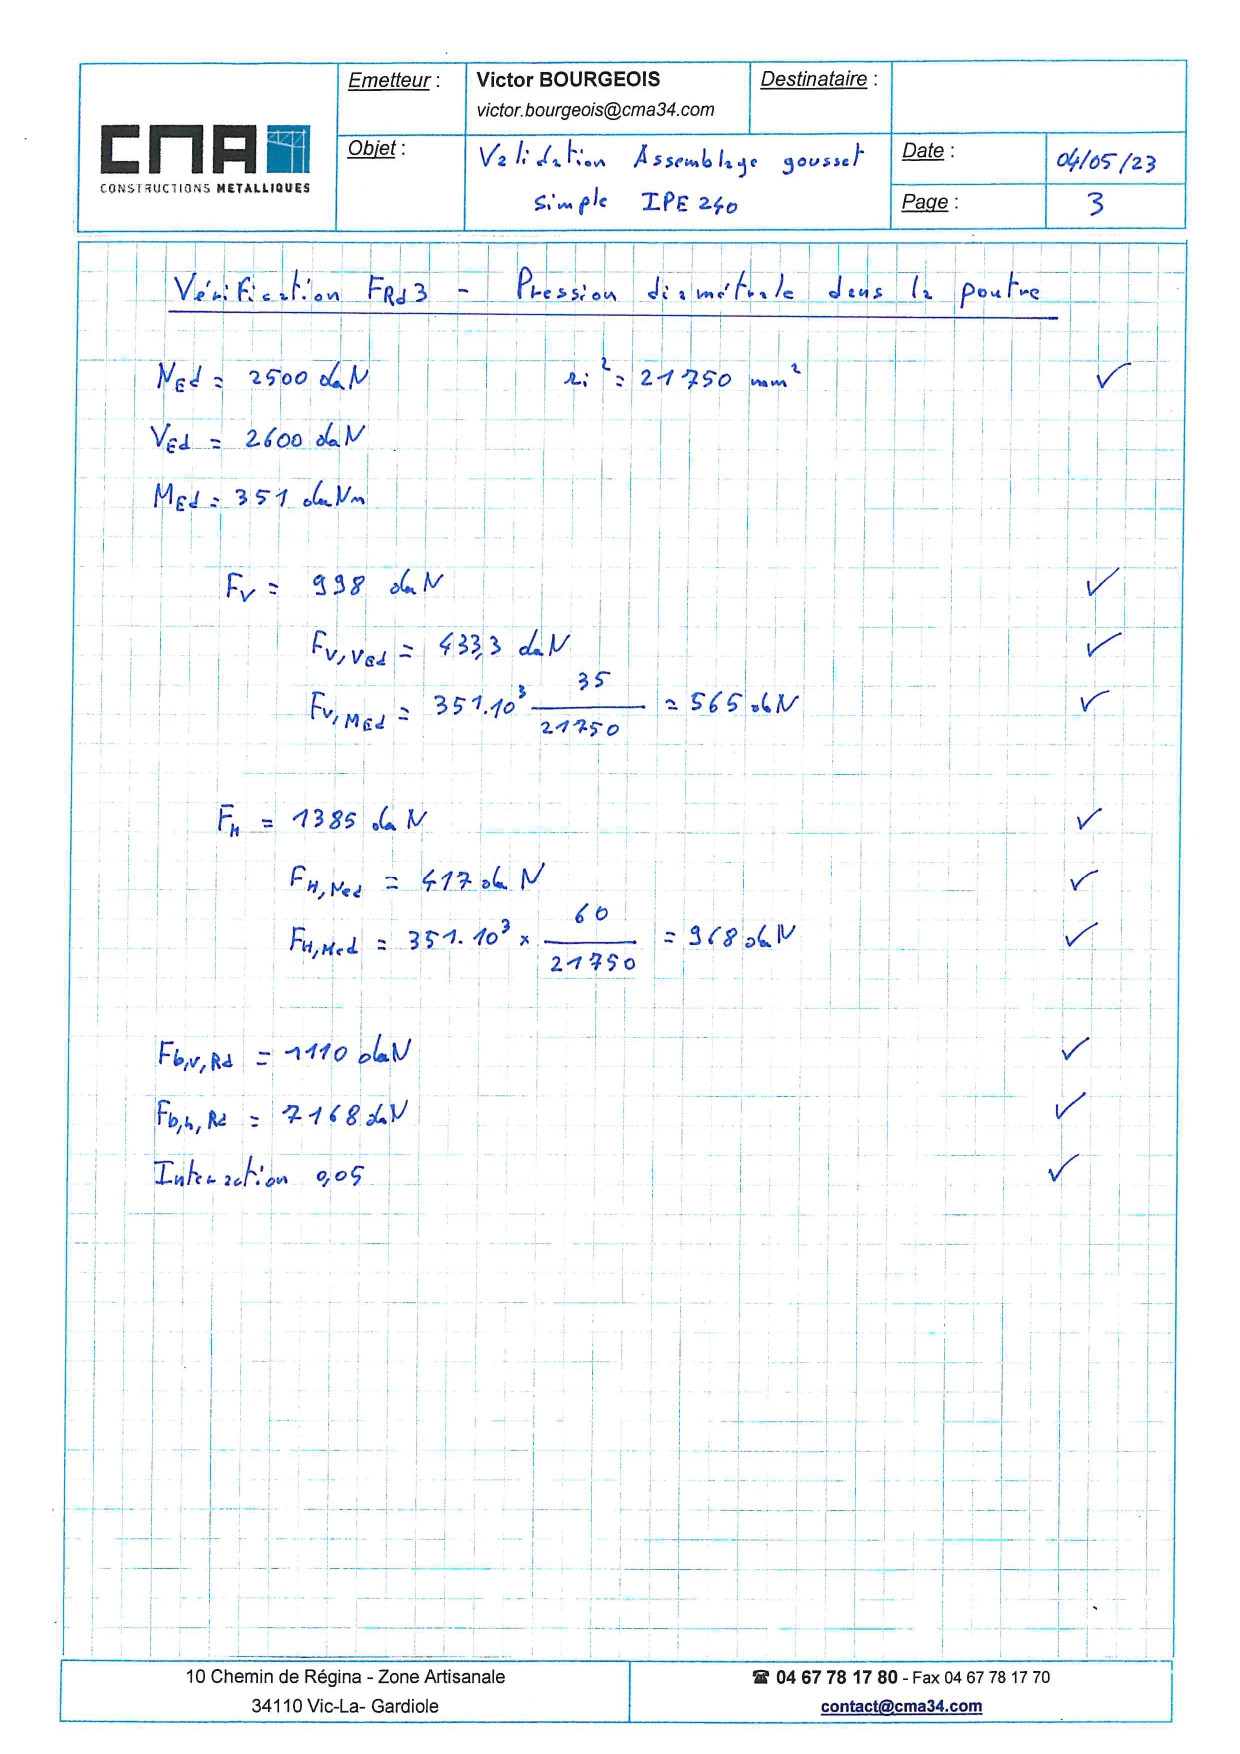 CMA
CONSTRUCTIONS METALLIQUES
Emetteur :
Victor BOURGEOIS
victor.bourgeois@cma34.com
Destinataire :
Objet :
Validation Assemblage gousset
simple IPE 240
Date :
04/05/23
Page :
3
Vérification FRd3 - Pression diamétrale dans la poutre
NEd = 2500 daN ri² = 21750 mm² ✓
VEd = 2600 daN
MEd = 351 daNm
Fv = 998 daN ✓
Fv,VEd = 433,3 daN ✓
Fv,MEd = 351.10³ 35/21750 = 565 daN ✓
Fh = 1385 daN ✓
FH,Ned = 417 daN ✓
FH,Med = 351.10³ x 60/21750 = 968 daN ✓
Fb,v,Rd = 1110 daN ✓
Fb,h,Rd = 7168 daN ✓
Interaction 0,05 ✓
10 Chemin de Régina - Zone Artisanale
34110 Vic-La- Gardiole
☎ 04 67 78 17 80 - Fax 04 67 78 17 70
contact@cma34.com